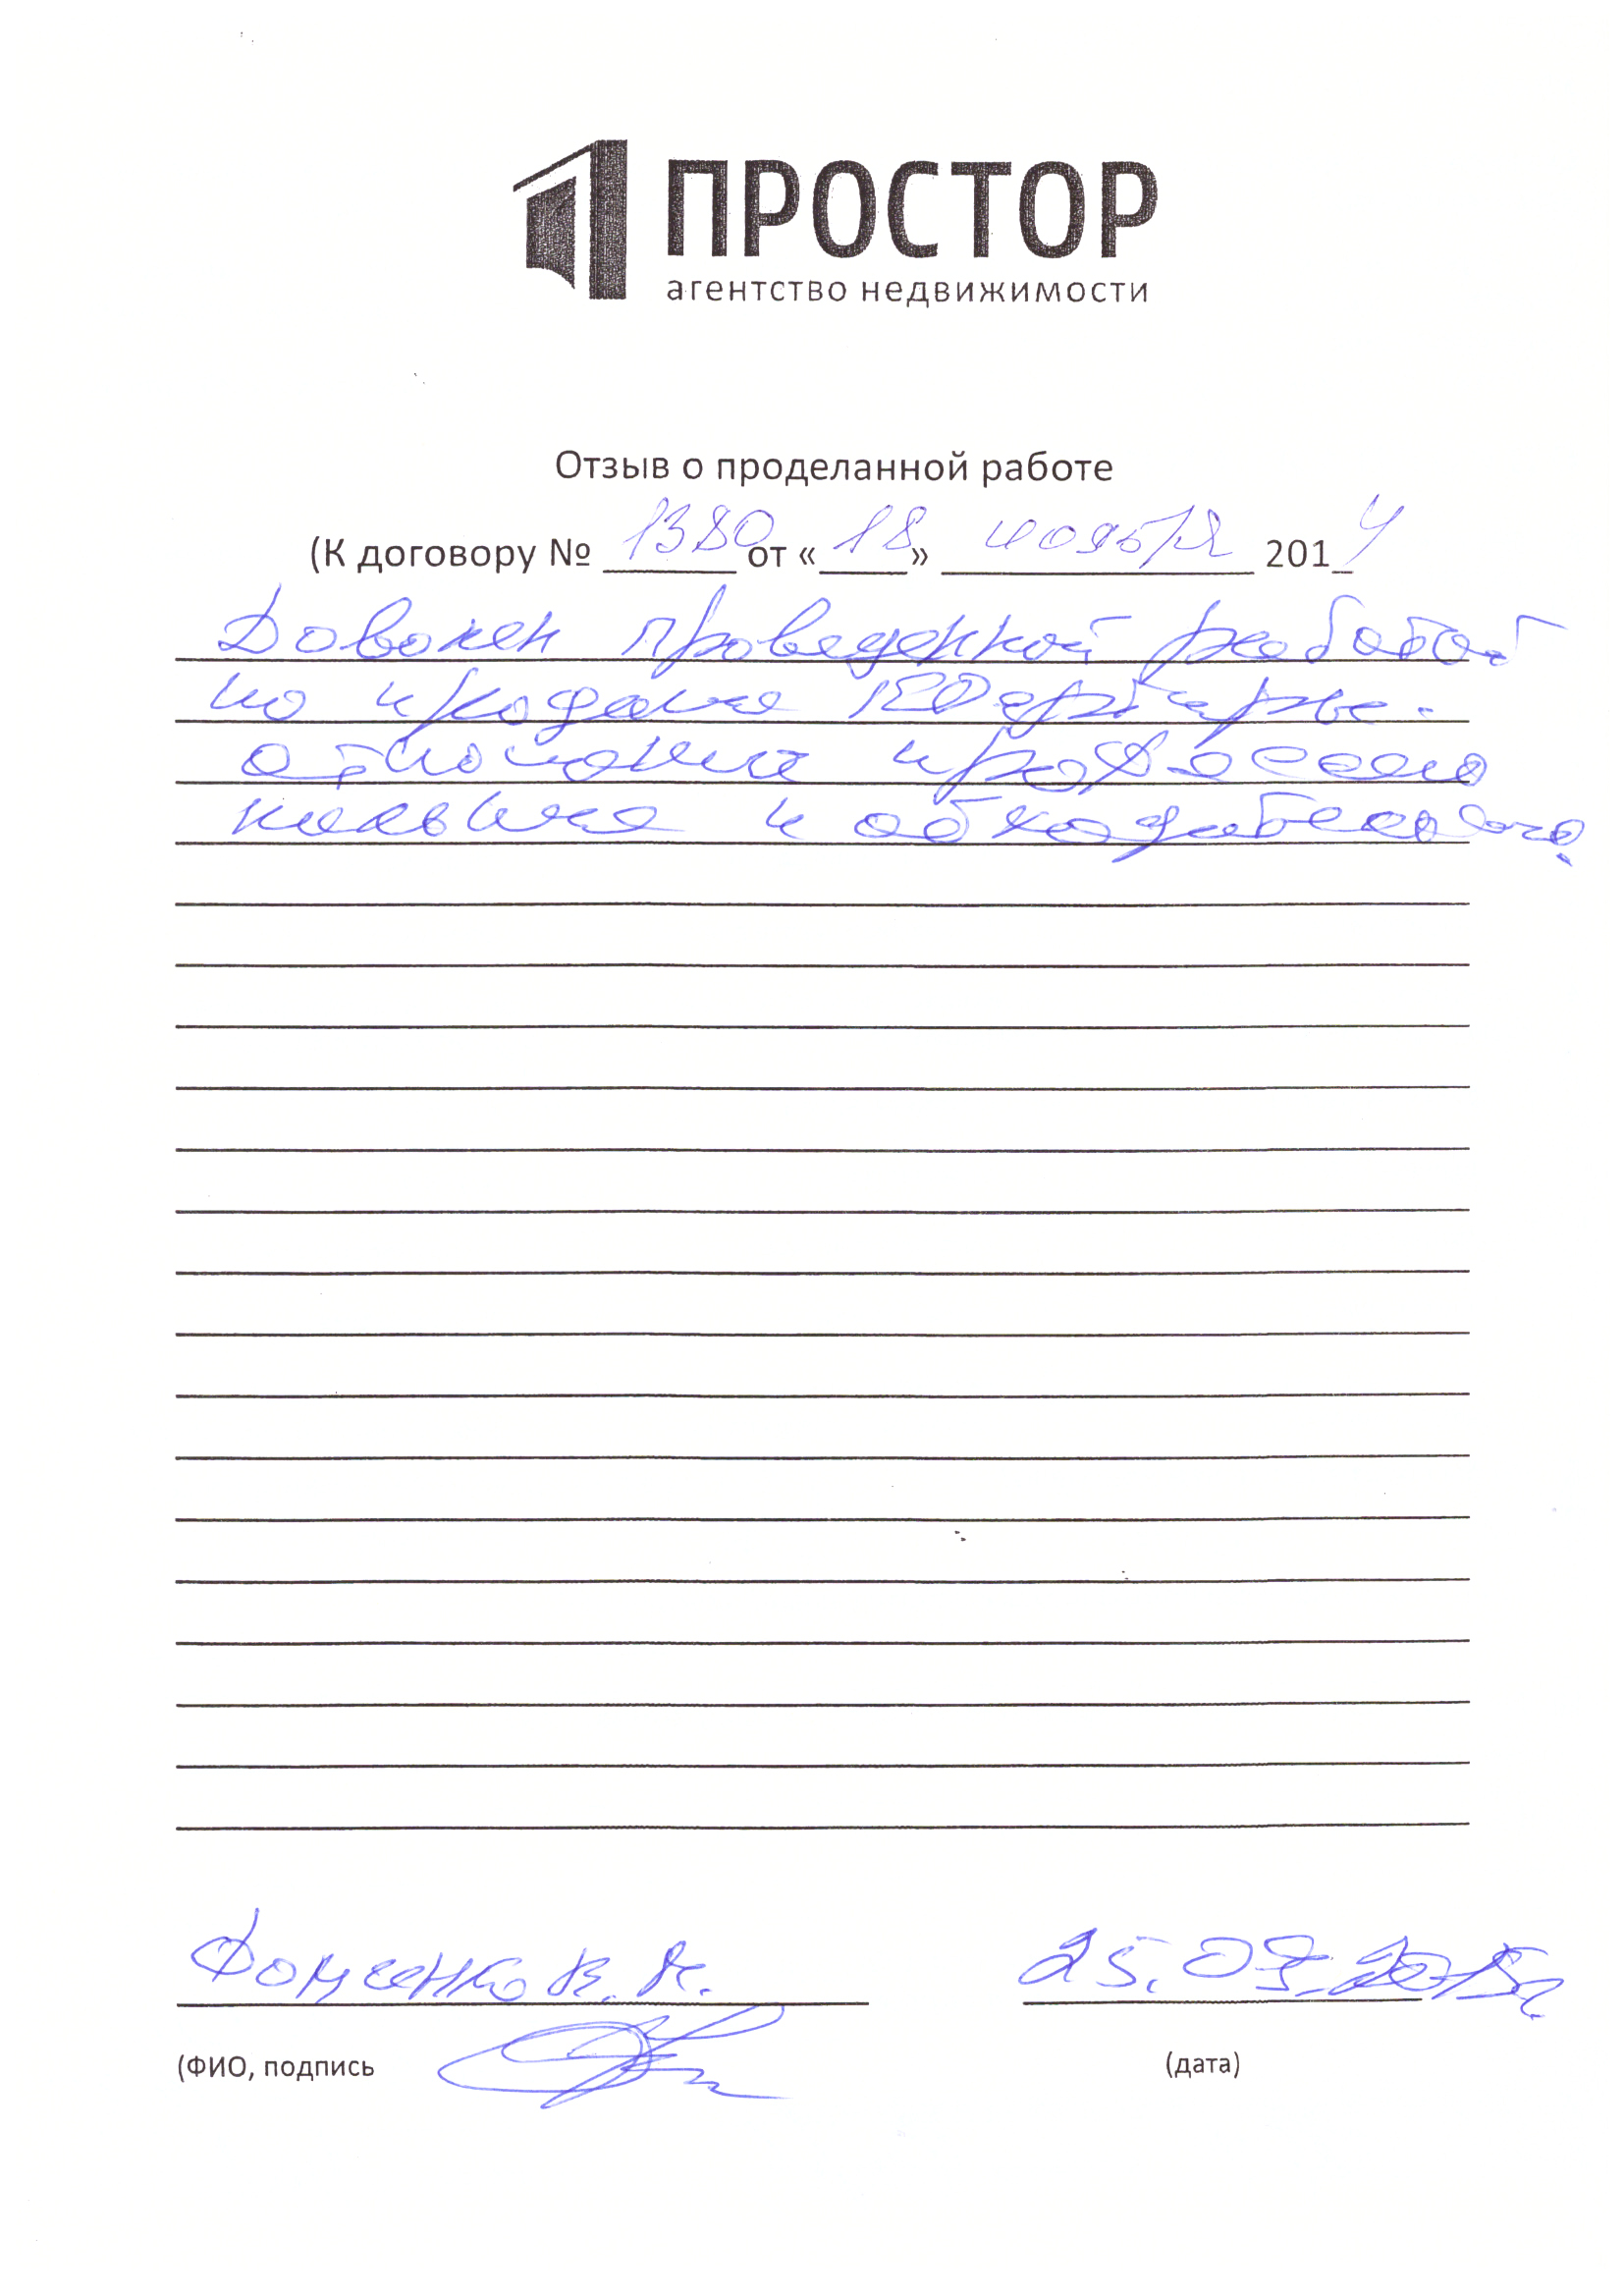 ПРОСТОР
агентство недвижимости
Отзыв о проделанной работе
(К договору № 1380 от «18» ноября 2014
Доволен проведенной работой
по продаже квартиры.
отношение профессио
нальное и обходительное.
Фоменко В. А.
25.03.2015г
(ФИО, подпись
(дата)